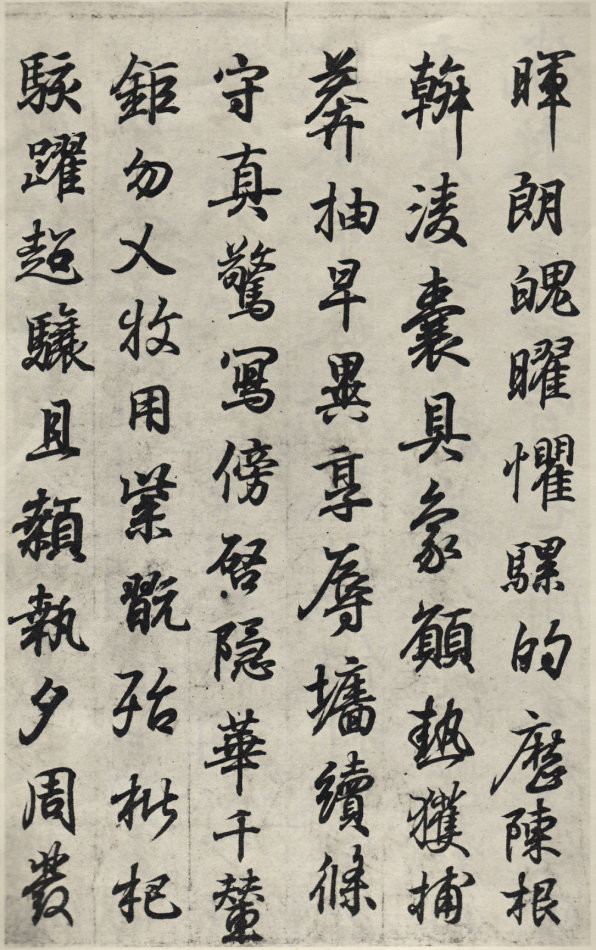 暉朗魄曜懼騾的歷陳根
斡凌囊具象願熱獲捕
莽抽早異享辱牆續條
守真驚寫傍啓隱華千輦
鉅勿乂牧用紫翫殆枇杷
駭躍超驤且顙執夕周發